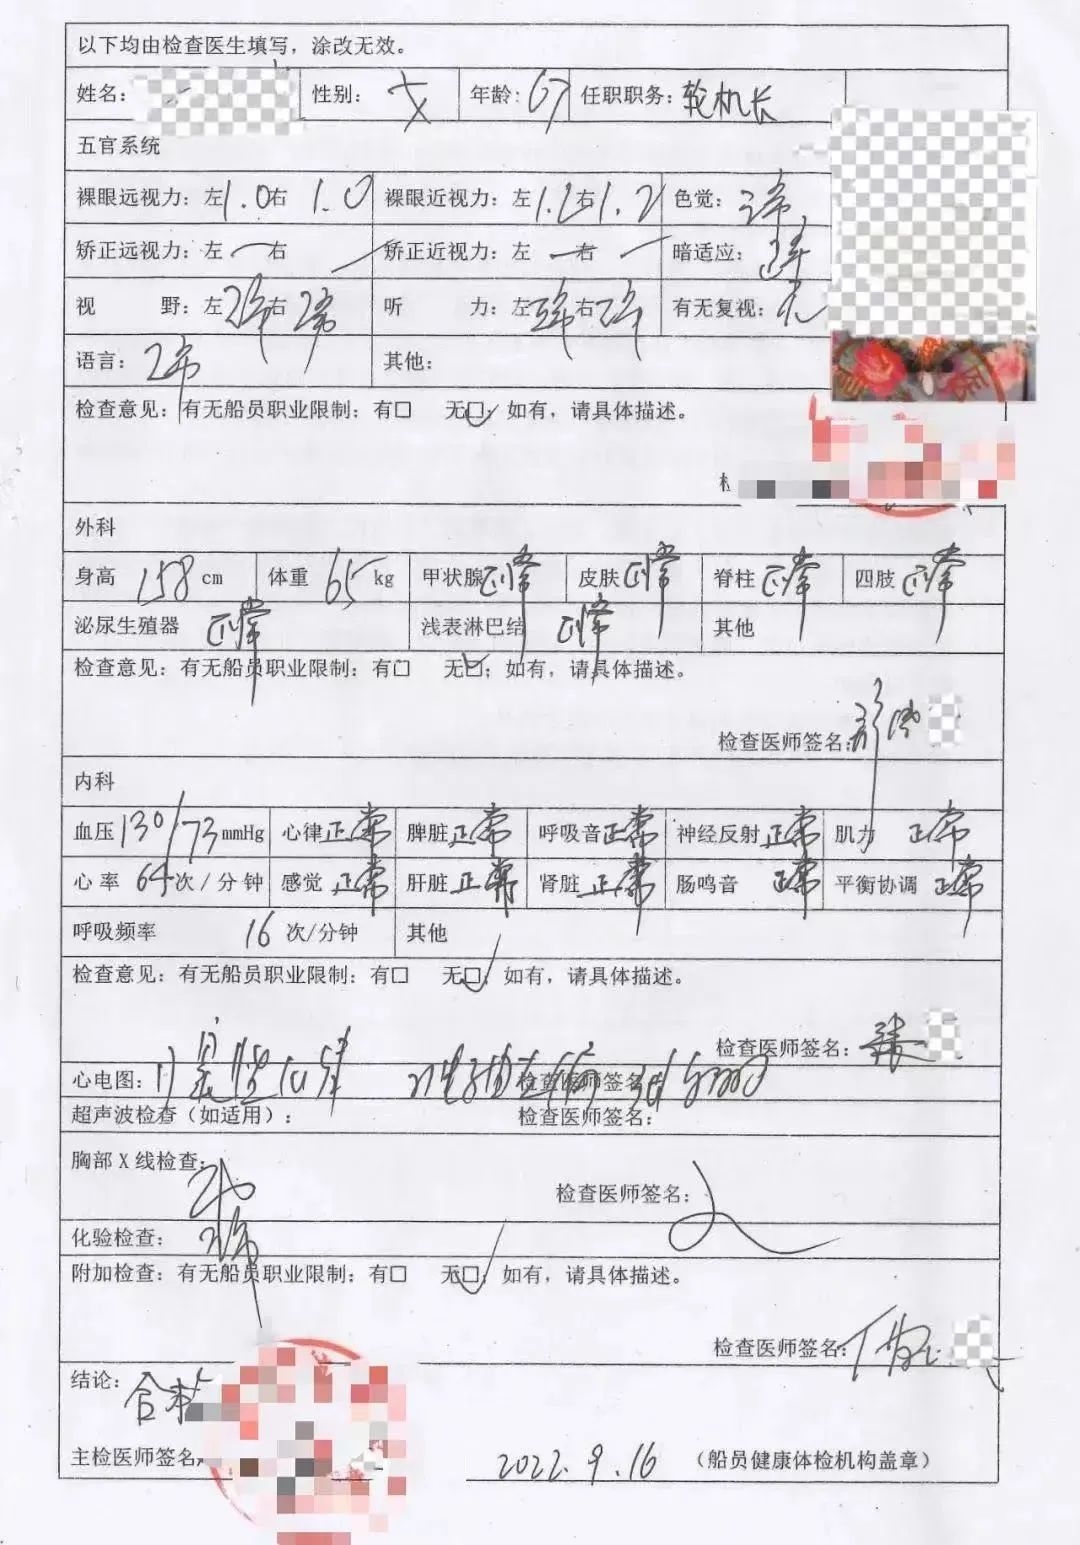 以下均由检查医生填写，涂改无效。
姓名： 性别：女 年龄：67 任职职务：轮机长
五官系统
裸眼远视力：左1.0右1.0 裸眼近视力：左1.2右1.2 色觉：正常
矫正远视力：左—右— 矫正近视力：左—右— 暗适应：正常
视 野：左正常右正常 听 力：左正常右正常 有无复视：无
语言：正常 其他：
检查意见：有无船员职业限制：有□ 无☑；如有，请具体描述。
外科
身高 158 cm 体重 65 kg 甲状腺 正常 皮肤 正常 脊柱 正常 四肢 正常
泌尿生殖器 正常 浅表淋巴结 正常 其他
检查意见：有无船员职业限制：有□ 无☑；如有，请具体描述。
检查医师签名：
内科
血压 130/73 mmHg 心律 正常 脾脏 正常 呼吸音 正常 神经反射 正常 肌力 正常
心率 64 次/分钟 感觉 正常 肝脏 正常 肾脏 正常 肠鸣音 正常 平衡协调 正常
呼吸频率 16 次/分钟 其他
检查意见：有无船员职业限制：有□ 无☑；如有，请具体描述。
检查医师签名：
心电图： 检查医师签名：
超声波检查（如适用）： 检查医师签名：
胸部X线检查： 检查医师签名：
化验检查：正常
附加检查：有无船员职业限制：有□ 无☑；如有，请具体描述。
检查医师签名：
结论：合格
主检医师签名： 2022.9.16 （船员健康体检机构盖章）